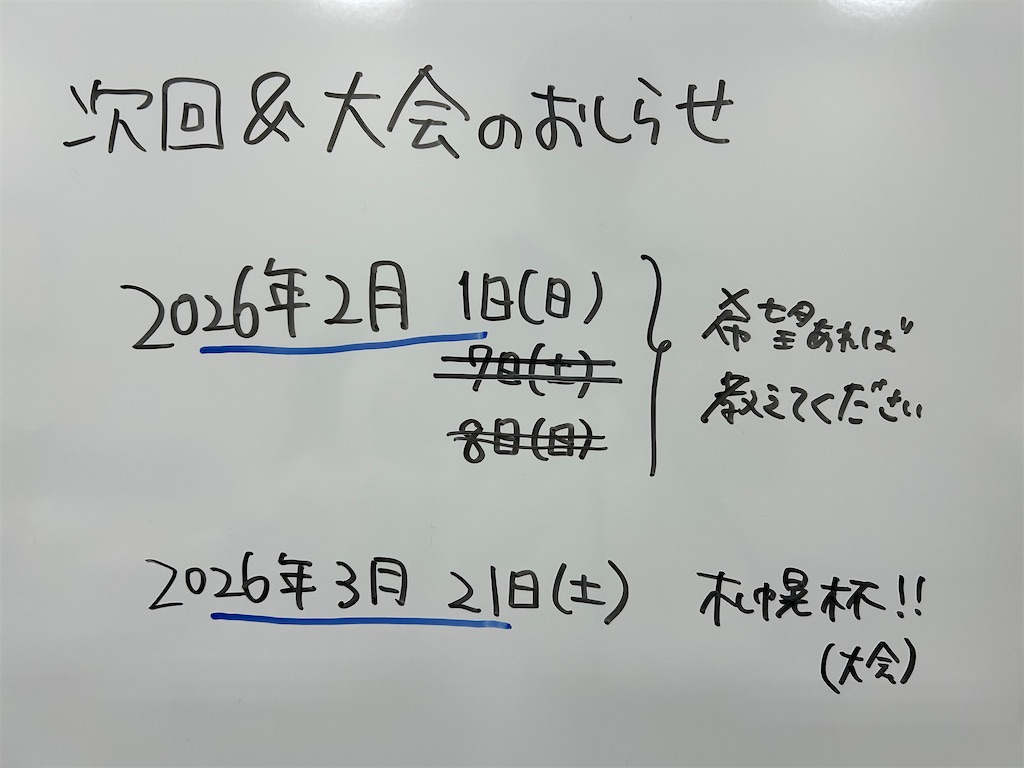 次回&大会のおしらせ
2026年2月 1日(日)
7日(土)
8日(日)
希望あれば
教えてください
2026年3月 21日(土) 札幌杯!!
(大会)